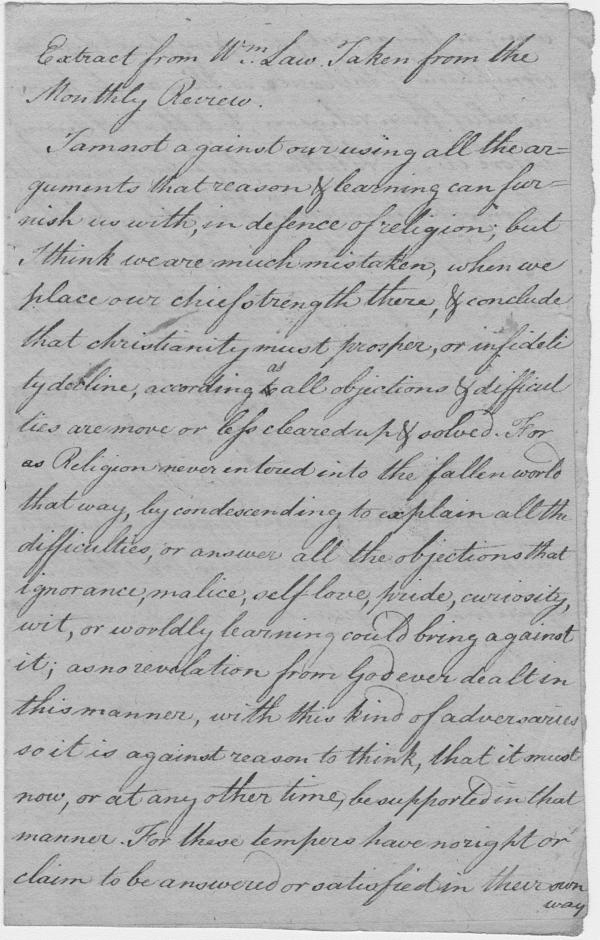 Extract from Wm. Law. Taken from the
Monthly Review.
I am not against our using all the ar=
guments that reason & learning can fur=
nish us with, in defence of religion; but
I think we are much mistaken, when we
place our chief strength there, & conclude
that christianity must prosper, or infideli
ty decline, according as all objections & difficul
ties are more or less cleared up & solved. For
as Religion never entered into the fallen world
that way, by condescending to explain all the
difficulties, or answer all the objections that
ignorance, malice, self love, pride, curiosity,
wit, or worldly learning could bring against
it; as no revelation from God ever dealt in
this manner, with this kind of adversaries
so it is against reason to think, that it must
now, or at any other time, be supported in that
manner. For these tempers have no right or
claim to be answered or satisfied in their own
way